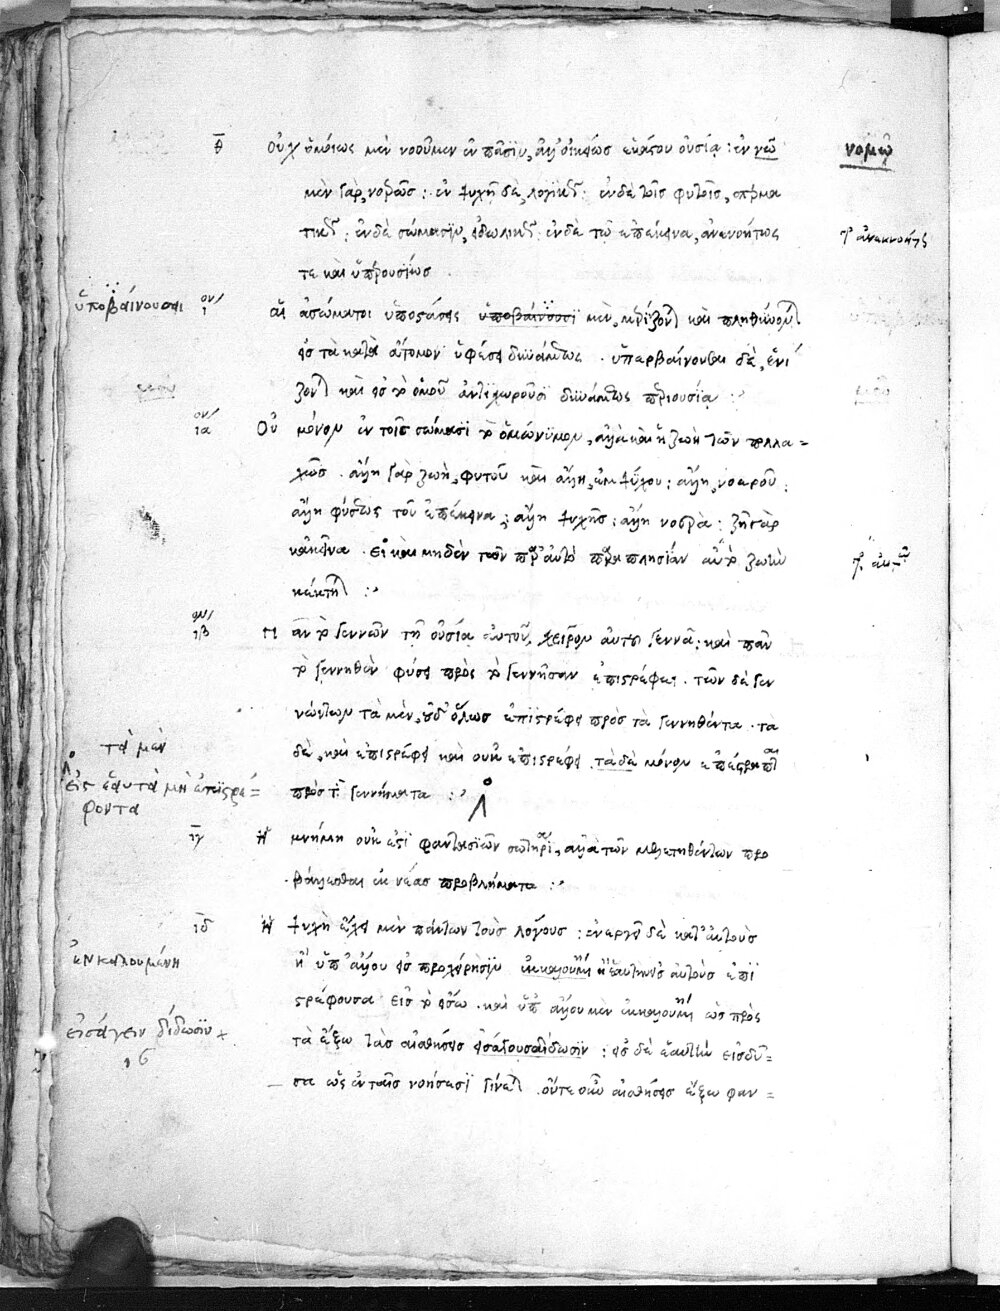 θ Οὐχ ὁμοίως μὲν νοοῦμεν ἐν πᾶσιν, ἀλλ' οἰκείως ἑκάστου οὐσίᾳ : ἐν νῷ
μὲν γὰρ, νοερῶς : ἐν ψυχῇ δὲ, λογικῶς : ἐν δὲ τοῖς φυτοῖς, σπερμα
τικῶς : ἐν δὲ σώμασιν, εἰδωλικῶς : ἐν δὲ τῷ ἐπέκεινα, ἀνεννοήτως
τε καὶ ὑπερουσίως
ὑποβαίνουσαι
ι αἱ ἀσώματοι ὑποστάσεις ὑποβαίνουσι μὲν, μερίζονται καὶ πληθύνονται
εἰς τὰ κατὰ ἄτομον ὑφέσει δυνάμεως . ὑπερβαίνουσαι δὲ, ἑνί
ζονται καὶ εἰς τὸ ὁμοῦ ἀντιχωροῦσι δυνάμεως περιουσίᾳ :
ια Οὐ μόνον ἐν τοῖς σώμασι τὸ ὁμώνυμον, ἀλλὰ καὶ ἡ ζωὴ τῶν πολλα=
χῶς . ἄλλη γὰρ ζωὴ, φυτοῦ καὶ ἄλλη, ἐμψύχου : ἄλλη, νοεροῦ :
ἄλλη φύσεως τοῦ ἐπέκεινα : ἄλλη ψυχῆς : ἄλλη νοερὰ : ζῇ γὰρ
κἀκεῖνα . εἰ καὶ μηδὲν τῶν παρ' αὐτὸ παραπλησίαν αὐτῷ ζωὴν
κέκτηται :
ιβ Πᾶν τὸ γεννῶν τῇ οὐσίᾳ αὐτοῦ, χεῖρον αὐτοῦ γεννᾷ : καὶ πᾶν
τὸ γεννηθὲν φύσει πρὸς τὸ γεννῆσαν ἐπιστρέφει . τῶν δὲ γεν
νώντων τὰ μὲν, οὐδ' ὅλως ἐπιστρέφει πρὸς τὰ γεννηθέντα . τὰ
δὲ, καὶ ἐπιστρέφει καὶ οὐκ ἐπιστρέφει . τὰ δὲ μόνον ἐπέστραπται
πρὸς τὰ γεννήματα :
τὰ μὲν
εἰς ἑαυτὰ μὴ ἐπιστρέ=
φοντα
ιγ Ἡ μνήμη οὐκ ἔστι φαντασιῶν σωτηρία, ἀλλὰ τῶν μελετηθέντων προ
βάλλεσθαι ἐκ νέας προβλήματα :
ιδ Ἡ ψυχὴ ἔχει μὲν πάντων τοὺς λόγους : ἐνεργεῖ δὲ κατ' αὐτοὺς
ἢ ὑπ' ἄλλου εἰς προχείρησιν ἐκκαλουμένη ἢ ἑαυτὴν εἰς αὐτοὺς ἐπι
στρέφουσα εἰς τὸ εἴσω . καὶ ὑπ' ἄλλου μὲν ἐκκαλουμένη ὡς πρὸς
τὰ ἔξω τὰς αἰσθήσεις εἰσάγουσα δίδωσιν : εἰς δὲ ἑαυτὴν εἰσδῦ=
σα ὡς ἐν ταῖς νοήσεσι γίνεται . οὔτε οὖν αἰσθήσεις ἔξω φαν=
ἐκκαλουμένη
εἰσάγειν δίδωσιν